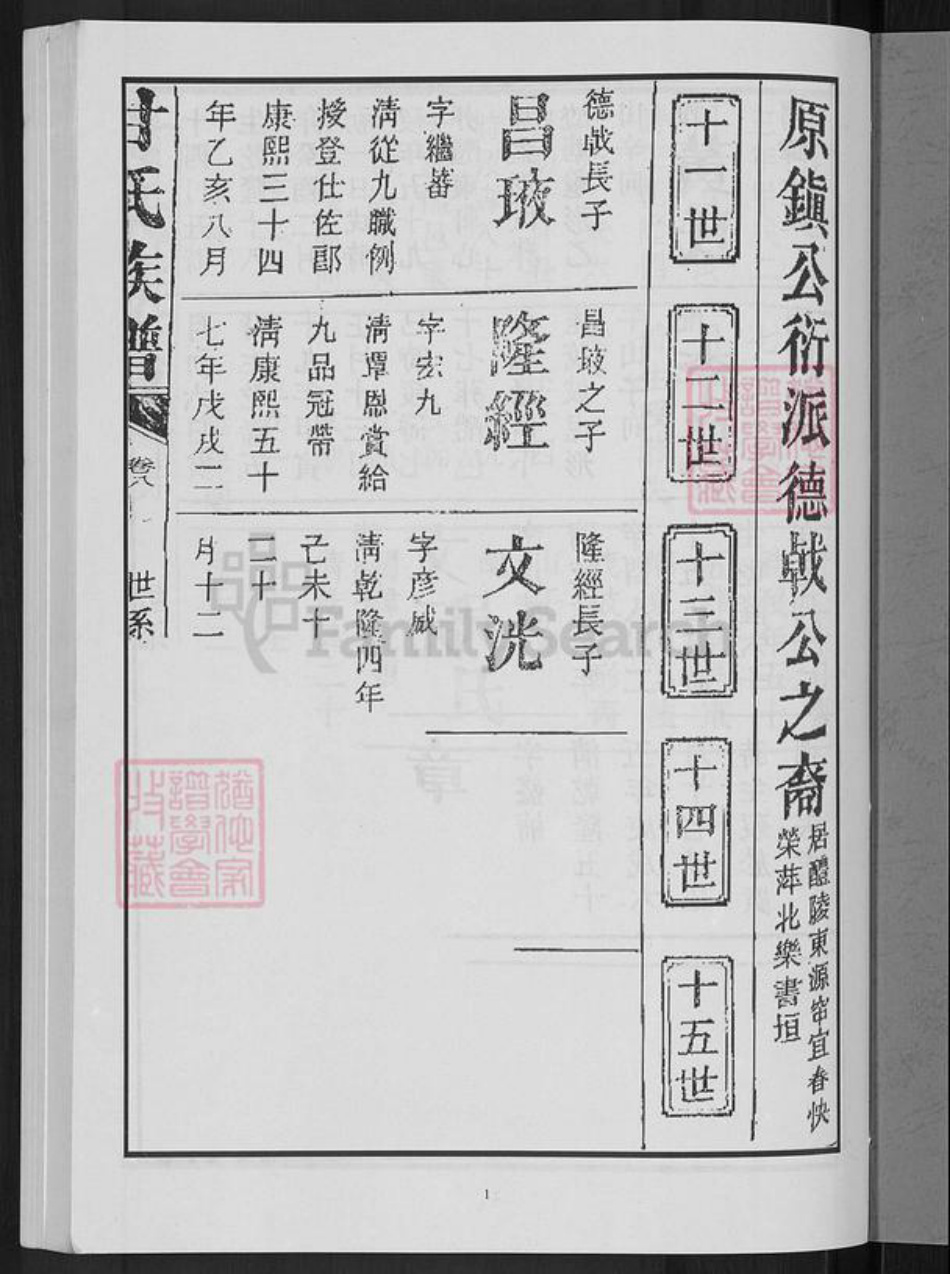 原鎮公衍派德戟公之裔
居醴陵東源帘宜春快
榮萍北樂書垣
十一世
十二世
十三世
十四世
十五世
德戟長子
昌玻
字繼蕃
清從九職例
授登仕佐郎
康熙三十四
年乙亥八月
昌玻之子
隆經
字宏九
清覃恩賞給
九品冠帶
清康熙五十
七年戊戌二
隆經長子
文洸
字彥威
清乾隆四年
己未十
二十
月十二
甘氏族譜
卷八
世系
FamilySearch
1